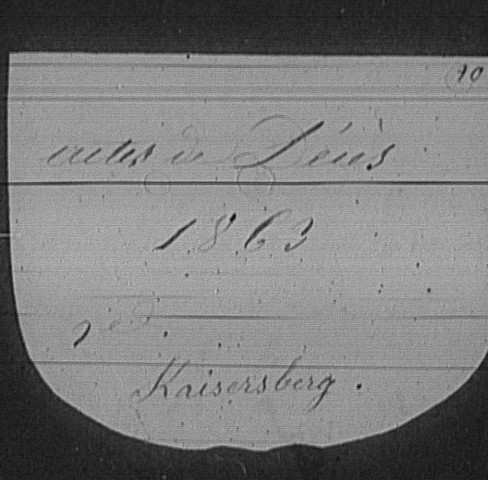 10
actes de Décès
1863
Kaisersberg.